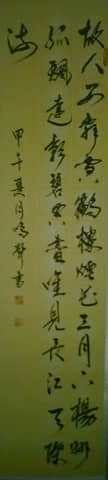 故人西辭黃鶴樓煙花三月下揚州
孤帆遠影碧空盡唯見長江天際
流
甲午夏月鳴聲書